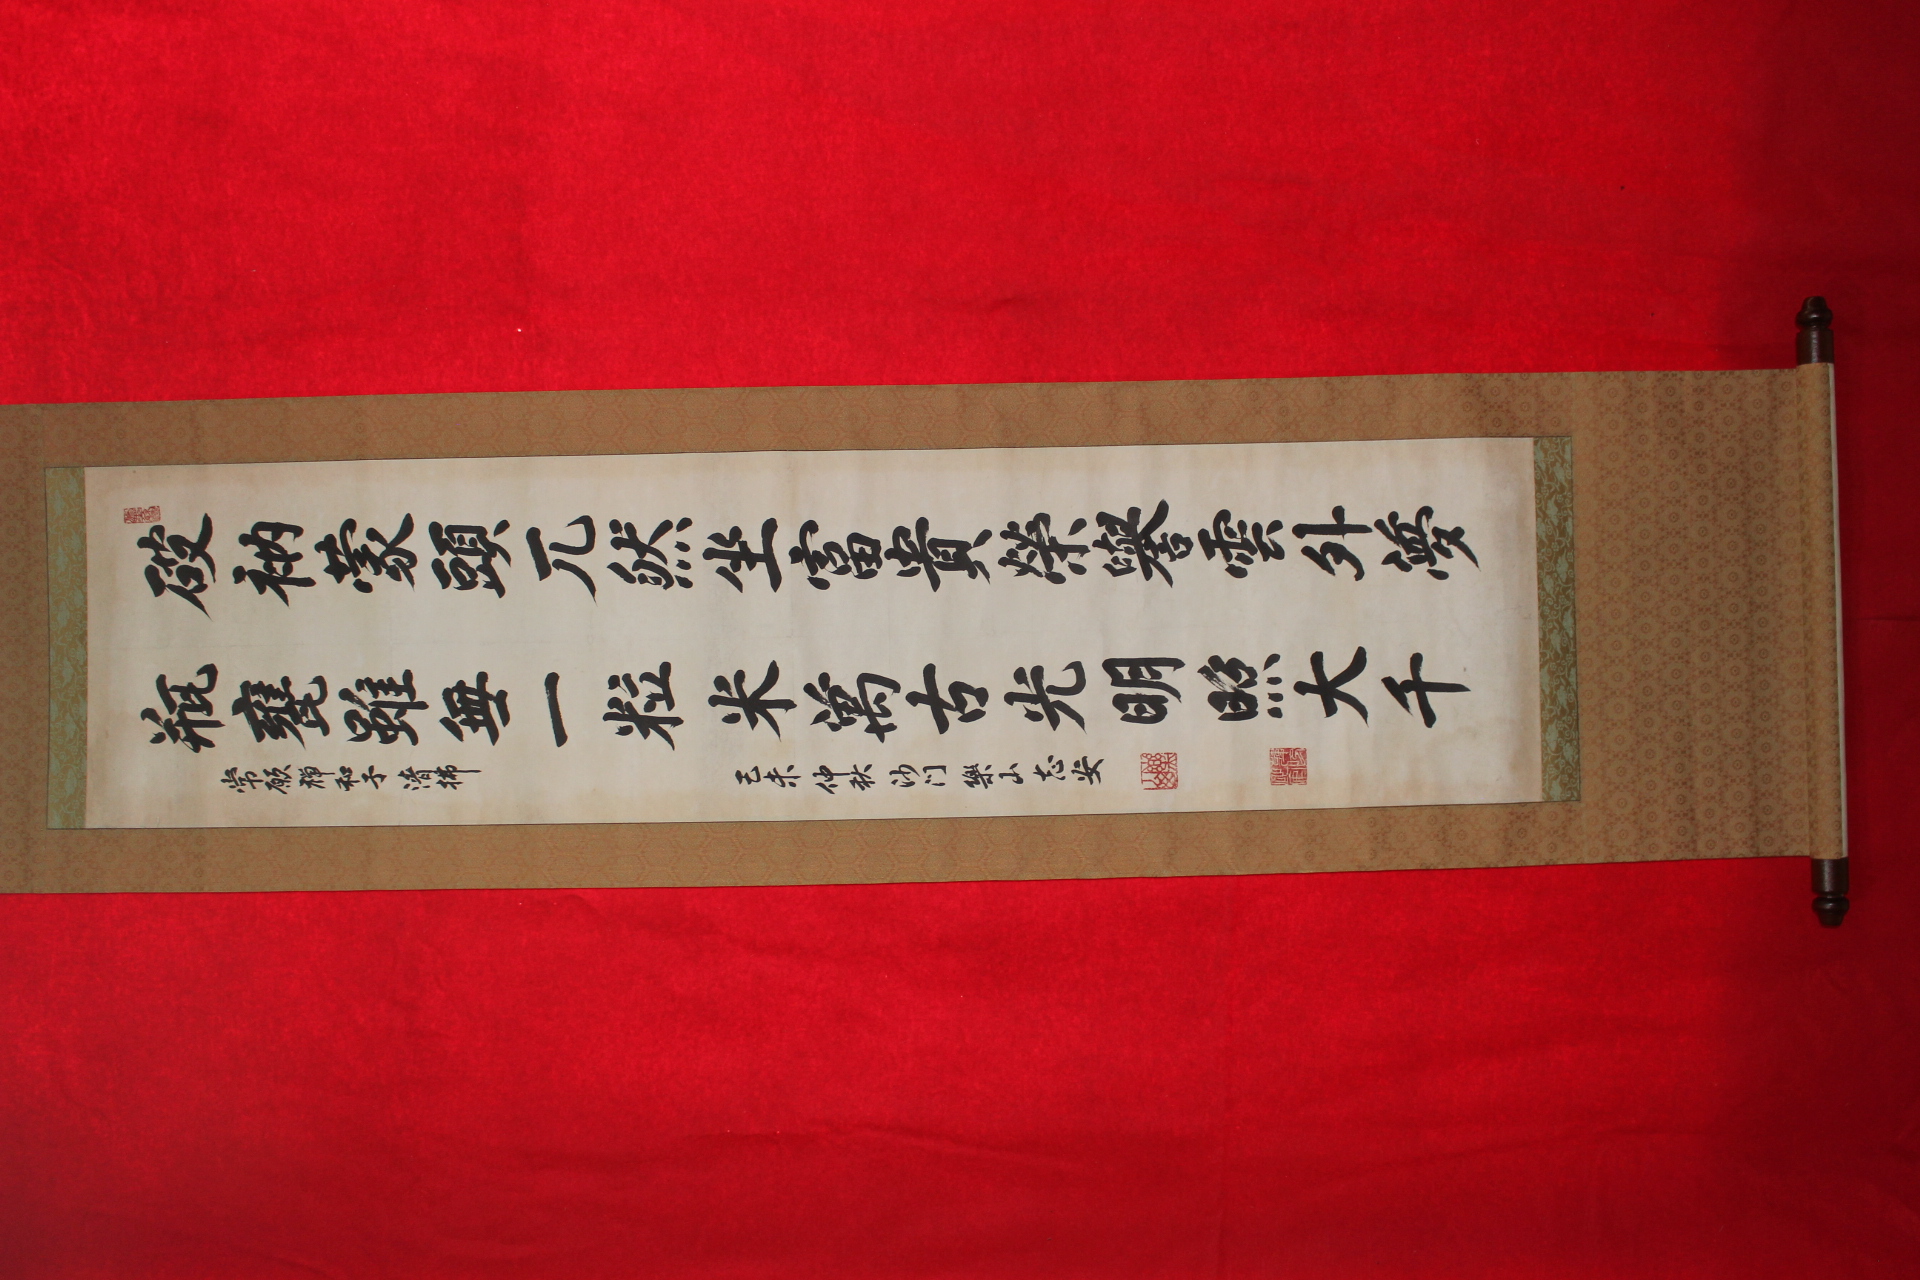 破衲蒙頭兀然坐富貴榮譽雲外夢
瓶甕雖無一粒米萬古光明照大千
常願禪和子清拂 己未仲秋沙门樂山志安